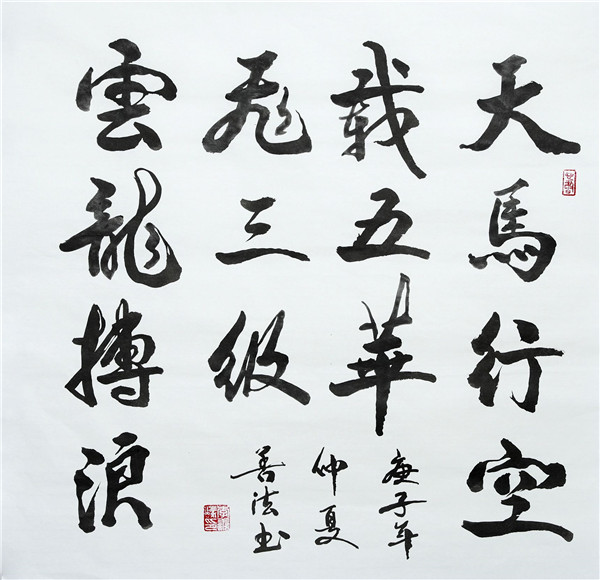 天馬行空
載五華
飛三級
雲龍搏浪
庚子年
仲夏
善法书